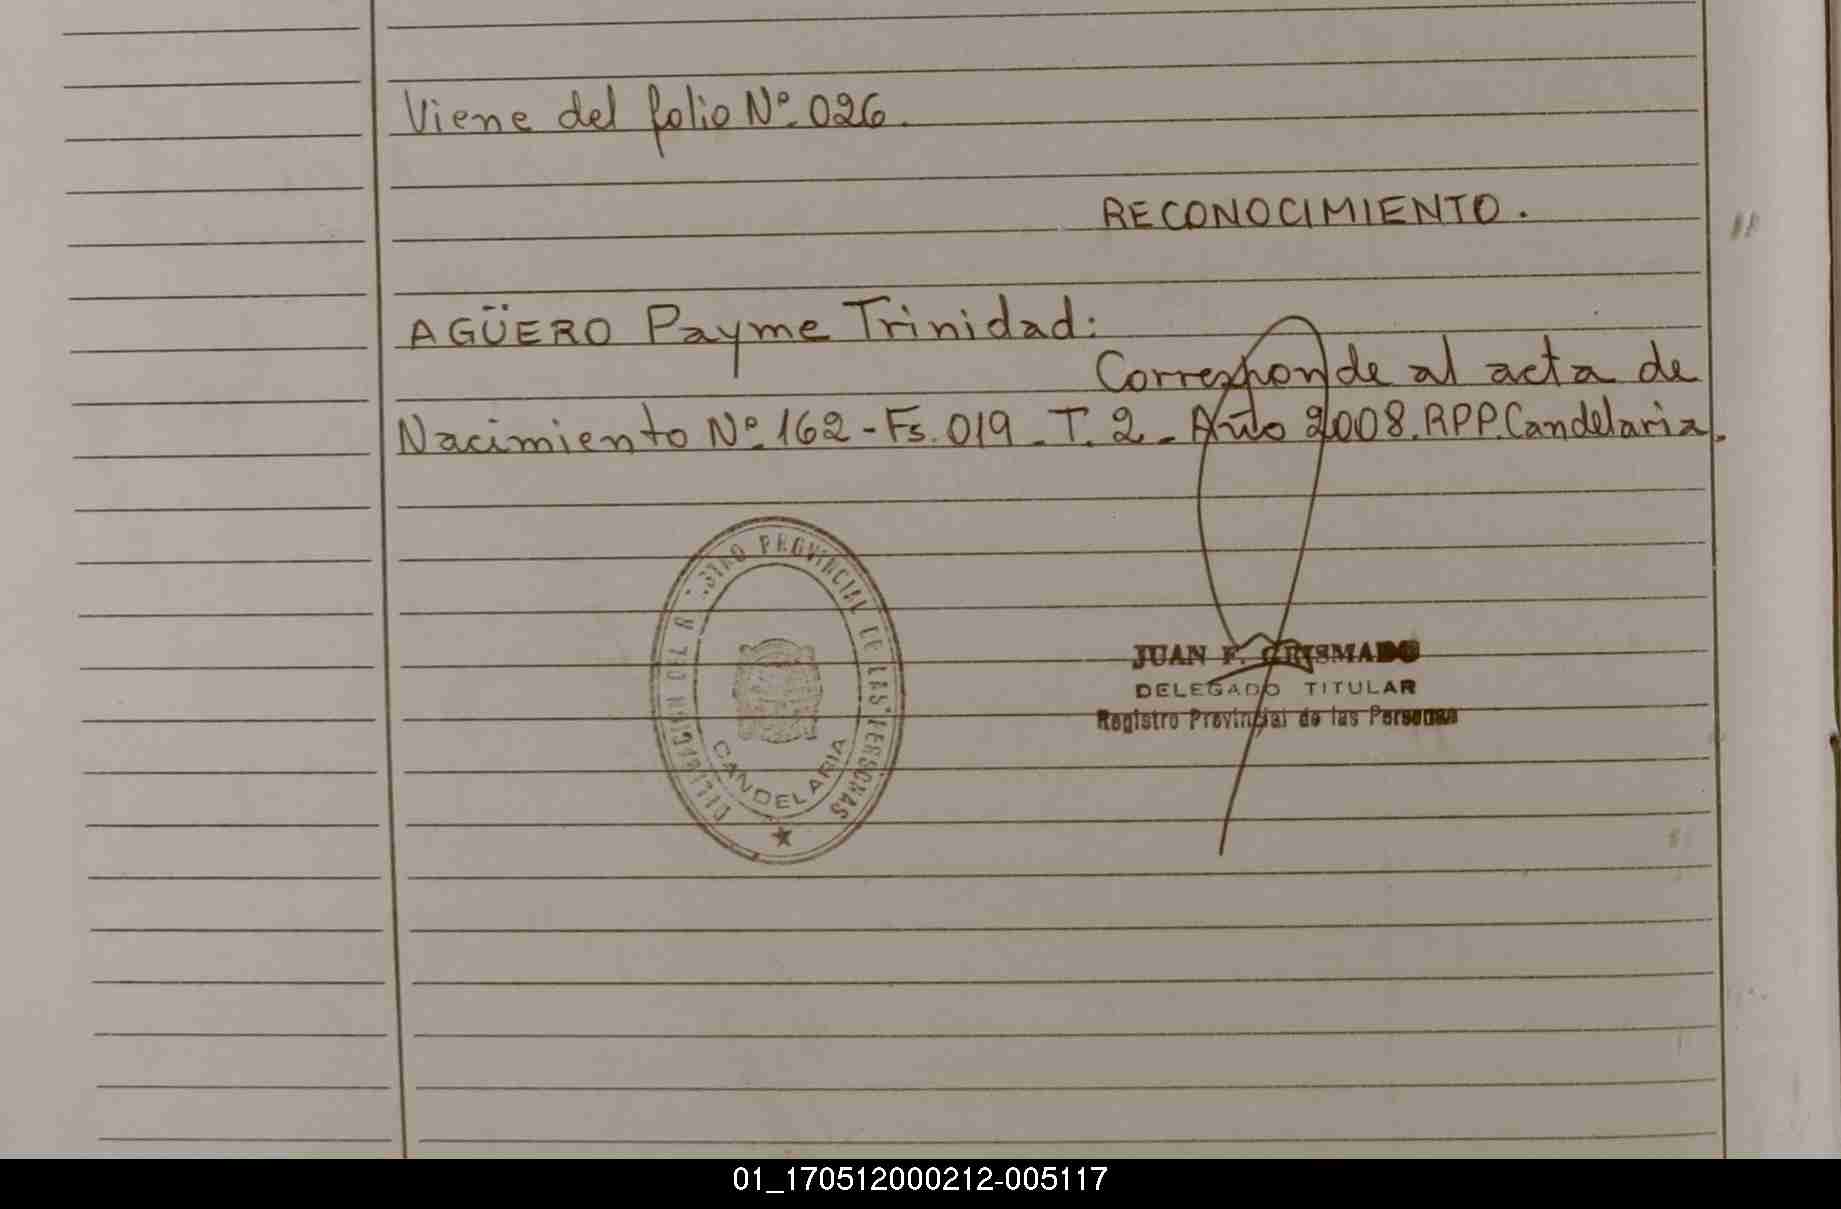 Viene del folio Nº 026.
RECONOCIMIENTO.
AGÜERO Payme Trinidad:
Corresponde al acta de
Nacimiento Nº 162 - Fs. 019 - T. 2 - Año 2008. RPP. Candelaria.
PROVINCIAL DE LAS PERSONAS
CANDELARIA
JUAN F. CRISMADO
DELEGADO TITULAR
Registro Provincial de las Personas
01_170512000212-005117